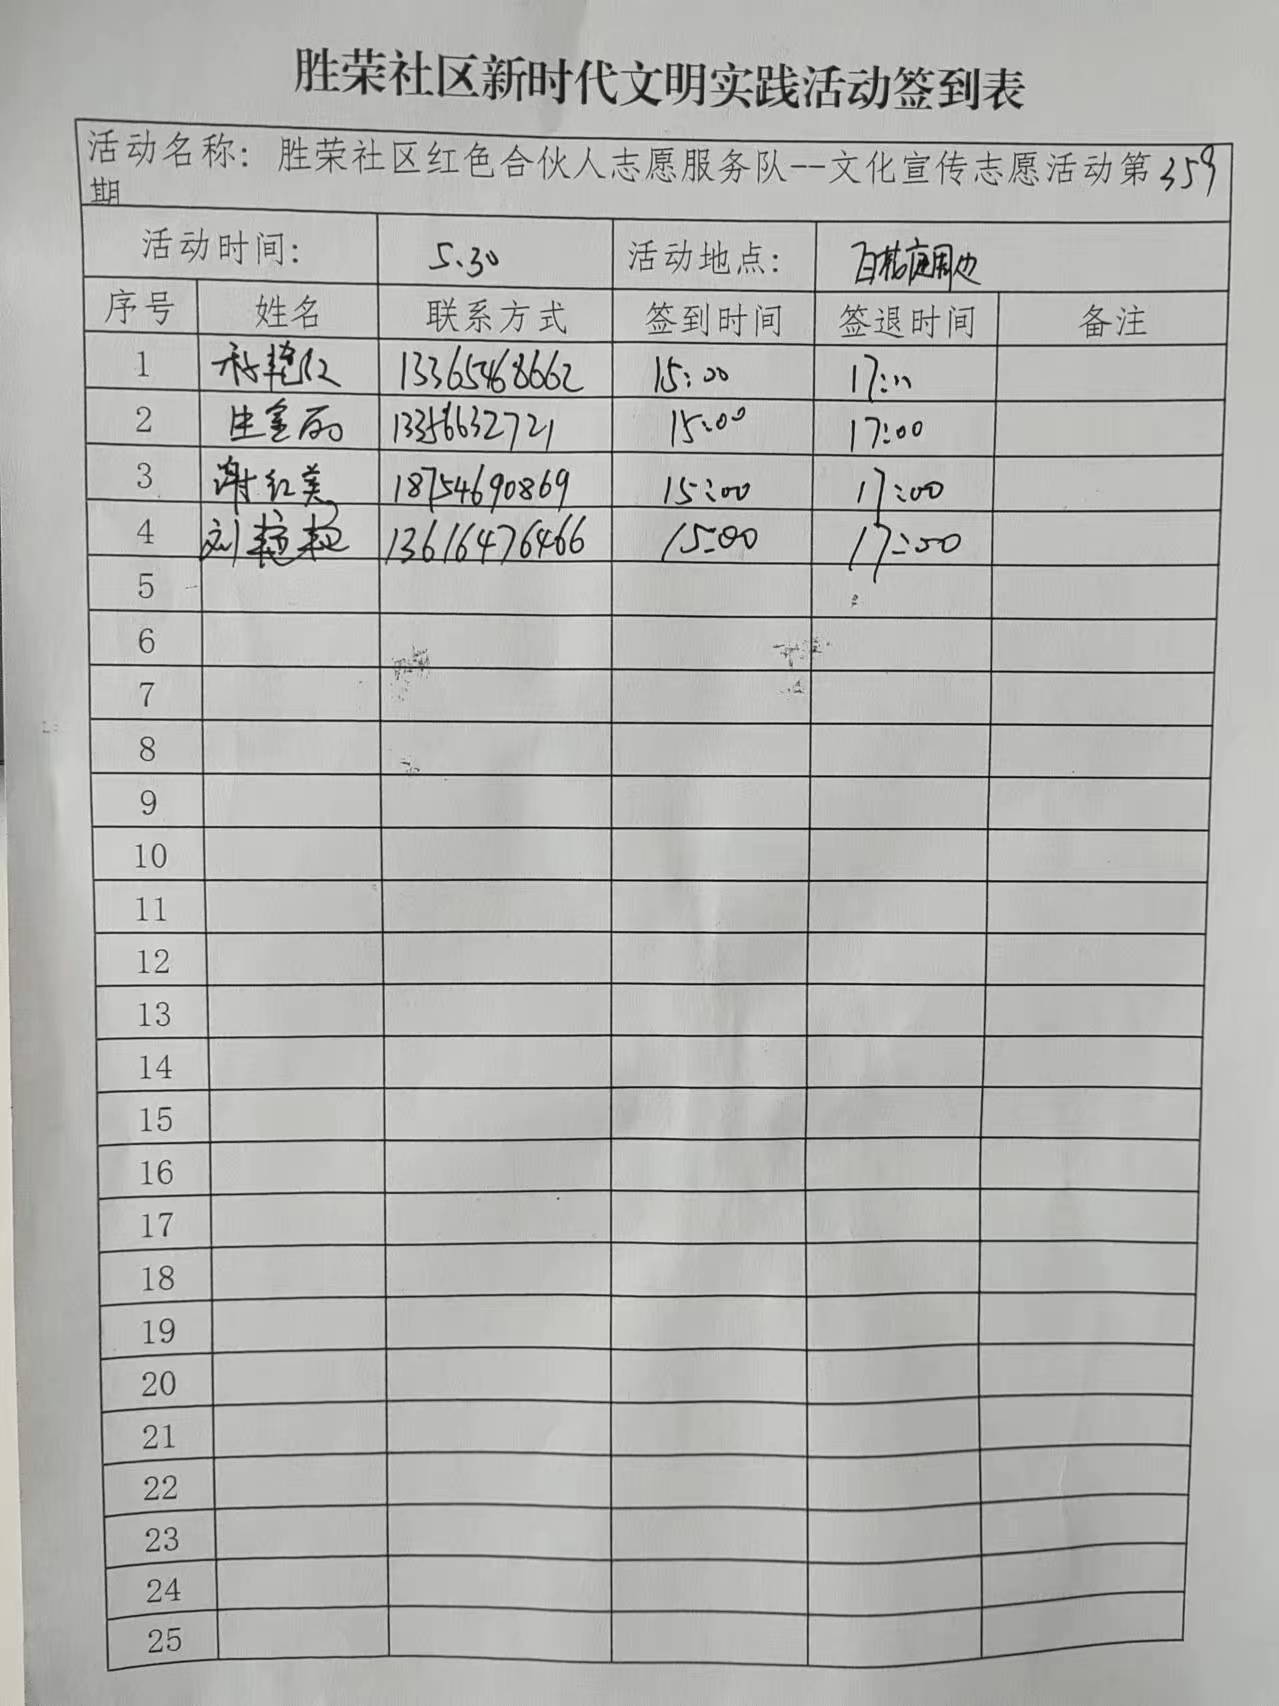 胜荣社区新时代文明实践活动签到表
活动名称：胜荣社区红色合伙人志愿服务队--文化宣传志愿活动第359
期
活动时间： 5.30 活动地点： 周边
序号 姓名 联系方式 签到时间 签退时间 备注
1 艳红 13365468662 15:00 17:00
2 金丽 13356632721 15:00 17:00
3 谢红美 18754690869 15:00 17:00
4 刘艳艳 13616476466 15:00 17:00
5
6
7
8
9
10
11
12
13
14
15
16
17
18
19
20
21
22
23
24
25